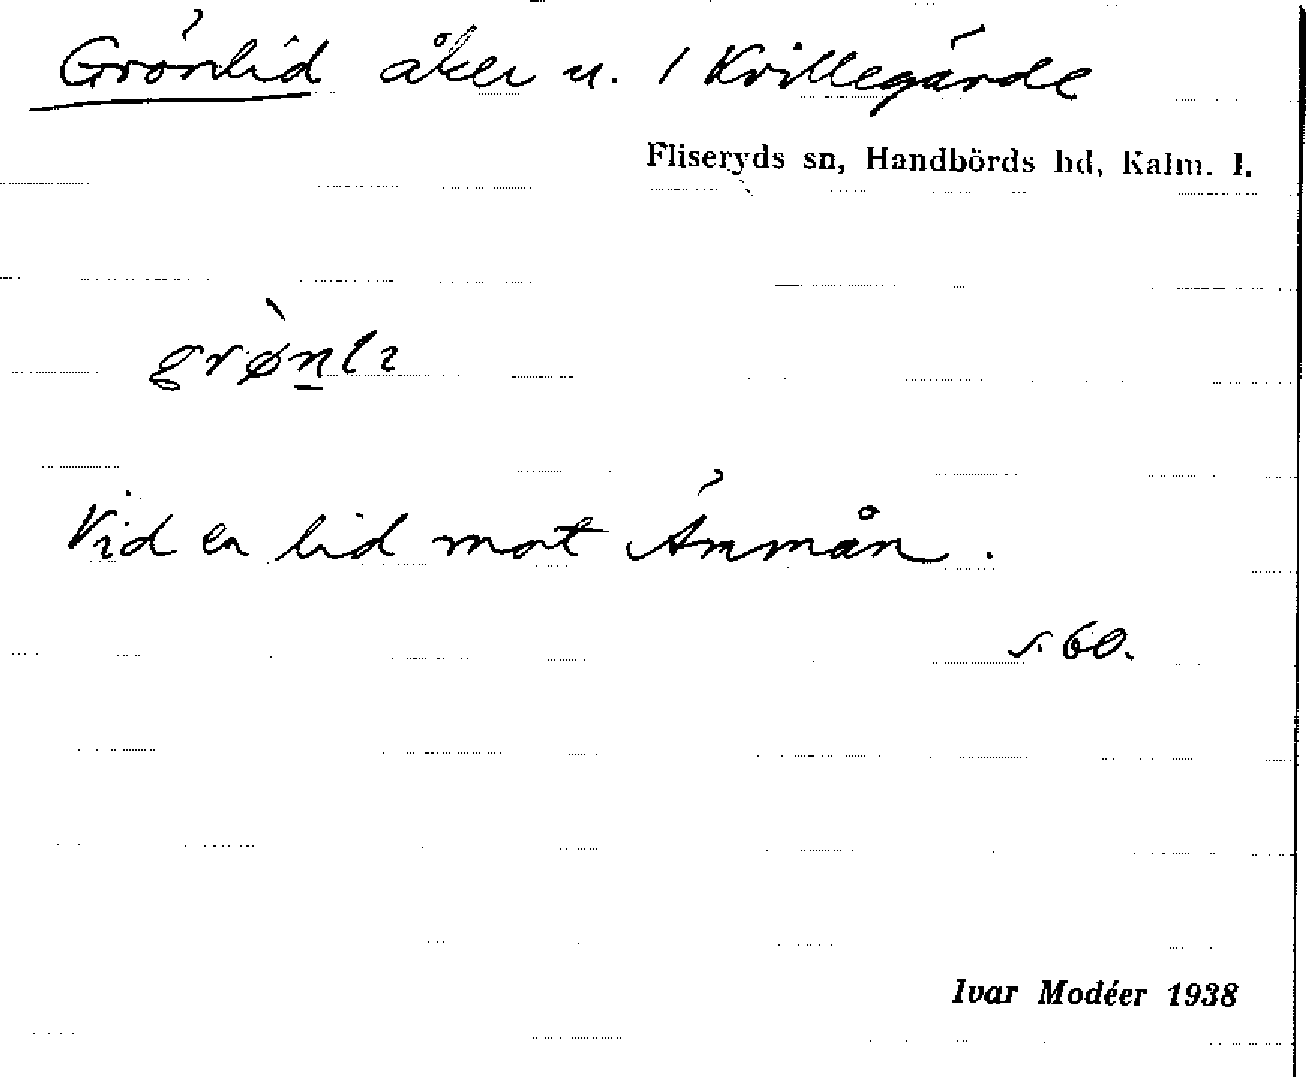 Grönlid åker u. 1 Kvillegärde
Fliseryds sn, Handbörds hd, Kalm. l.
grø̀n̲lɩ
Vid en lid mot Ämmån.
s. 60.
Ivar Modéer 1938